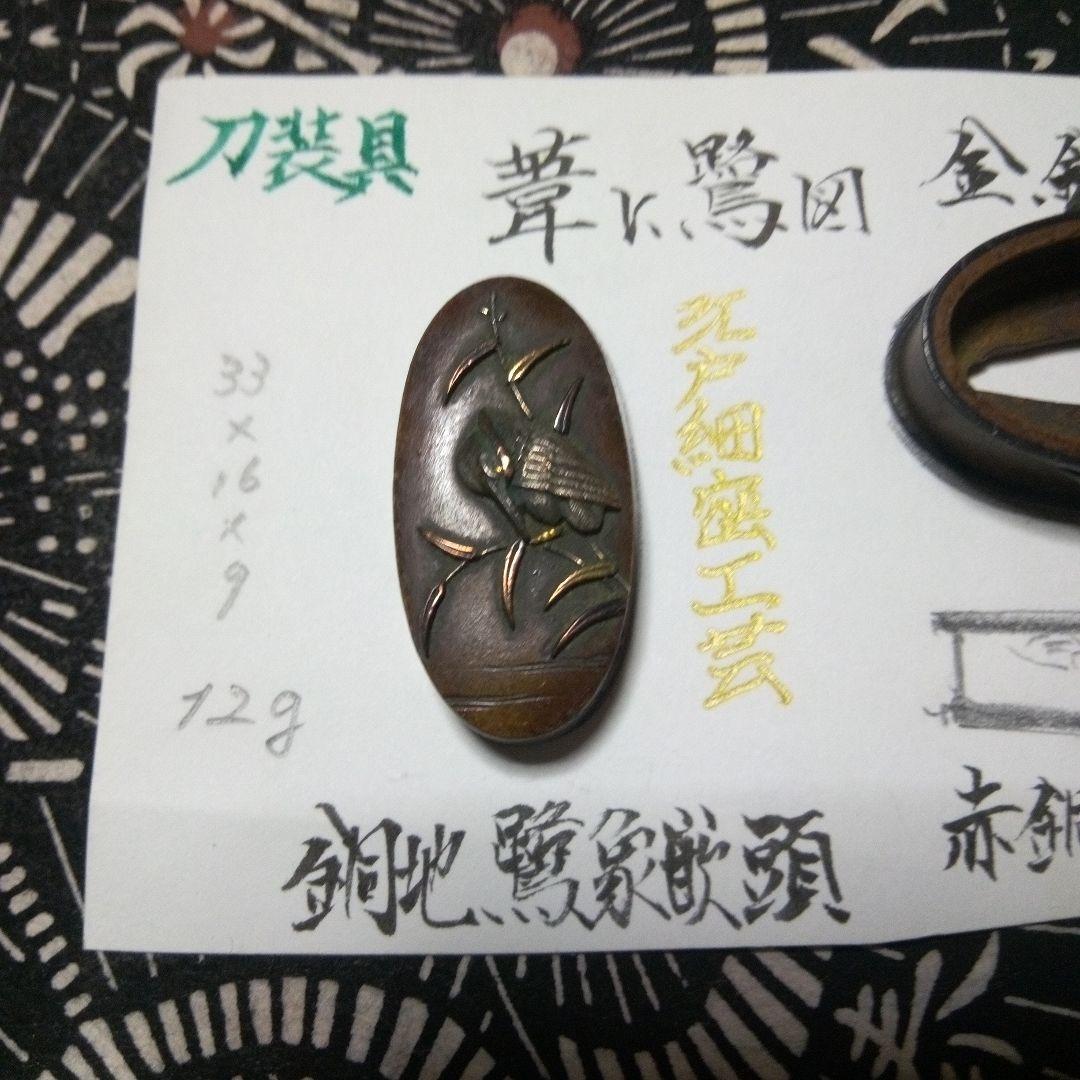 刀装具
葦に鷺図
金
江戸細密工芸
33
×
16
×
9
12g
銅地鷺象嵌頭
赤銅